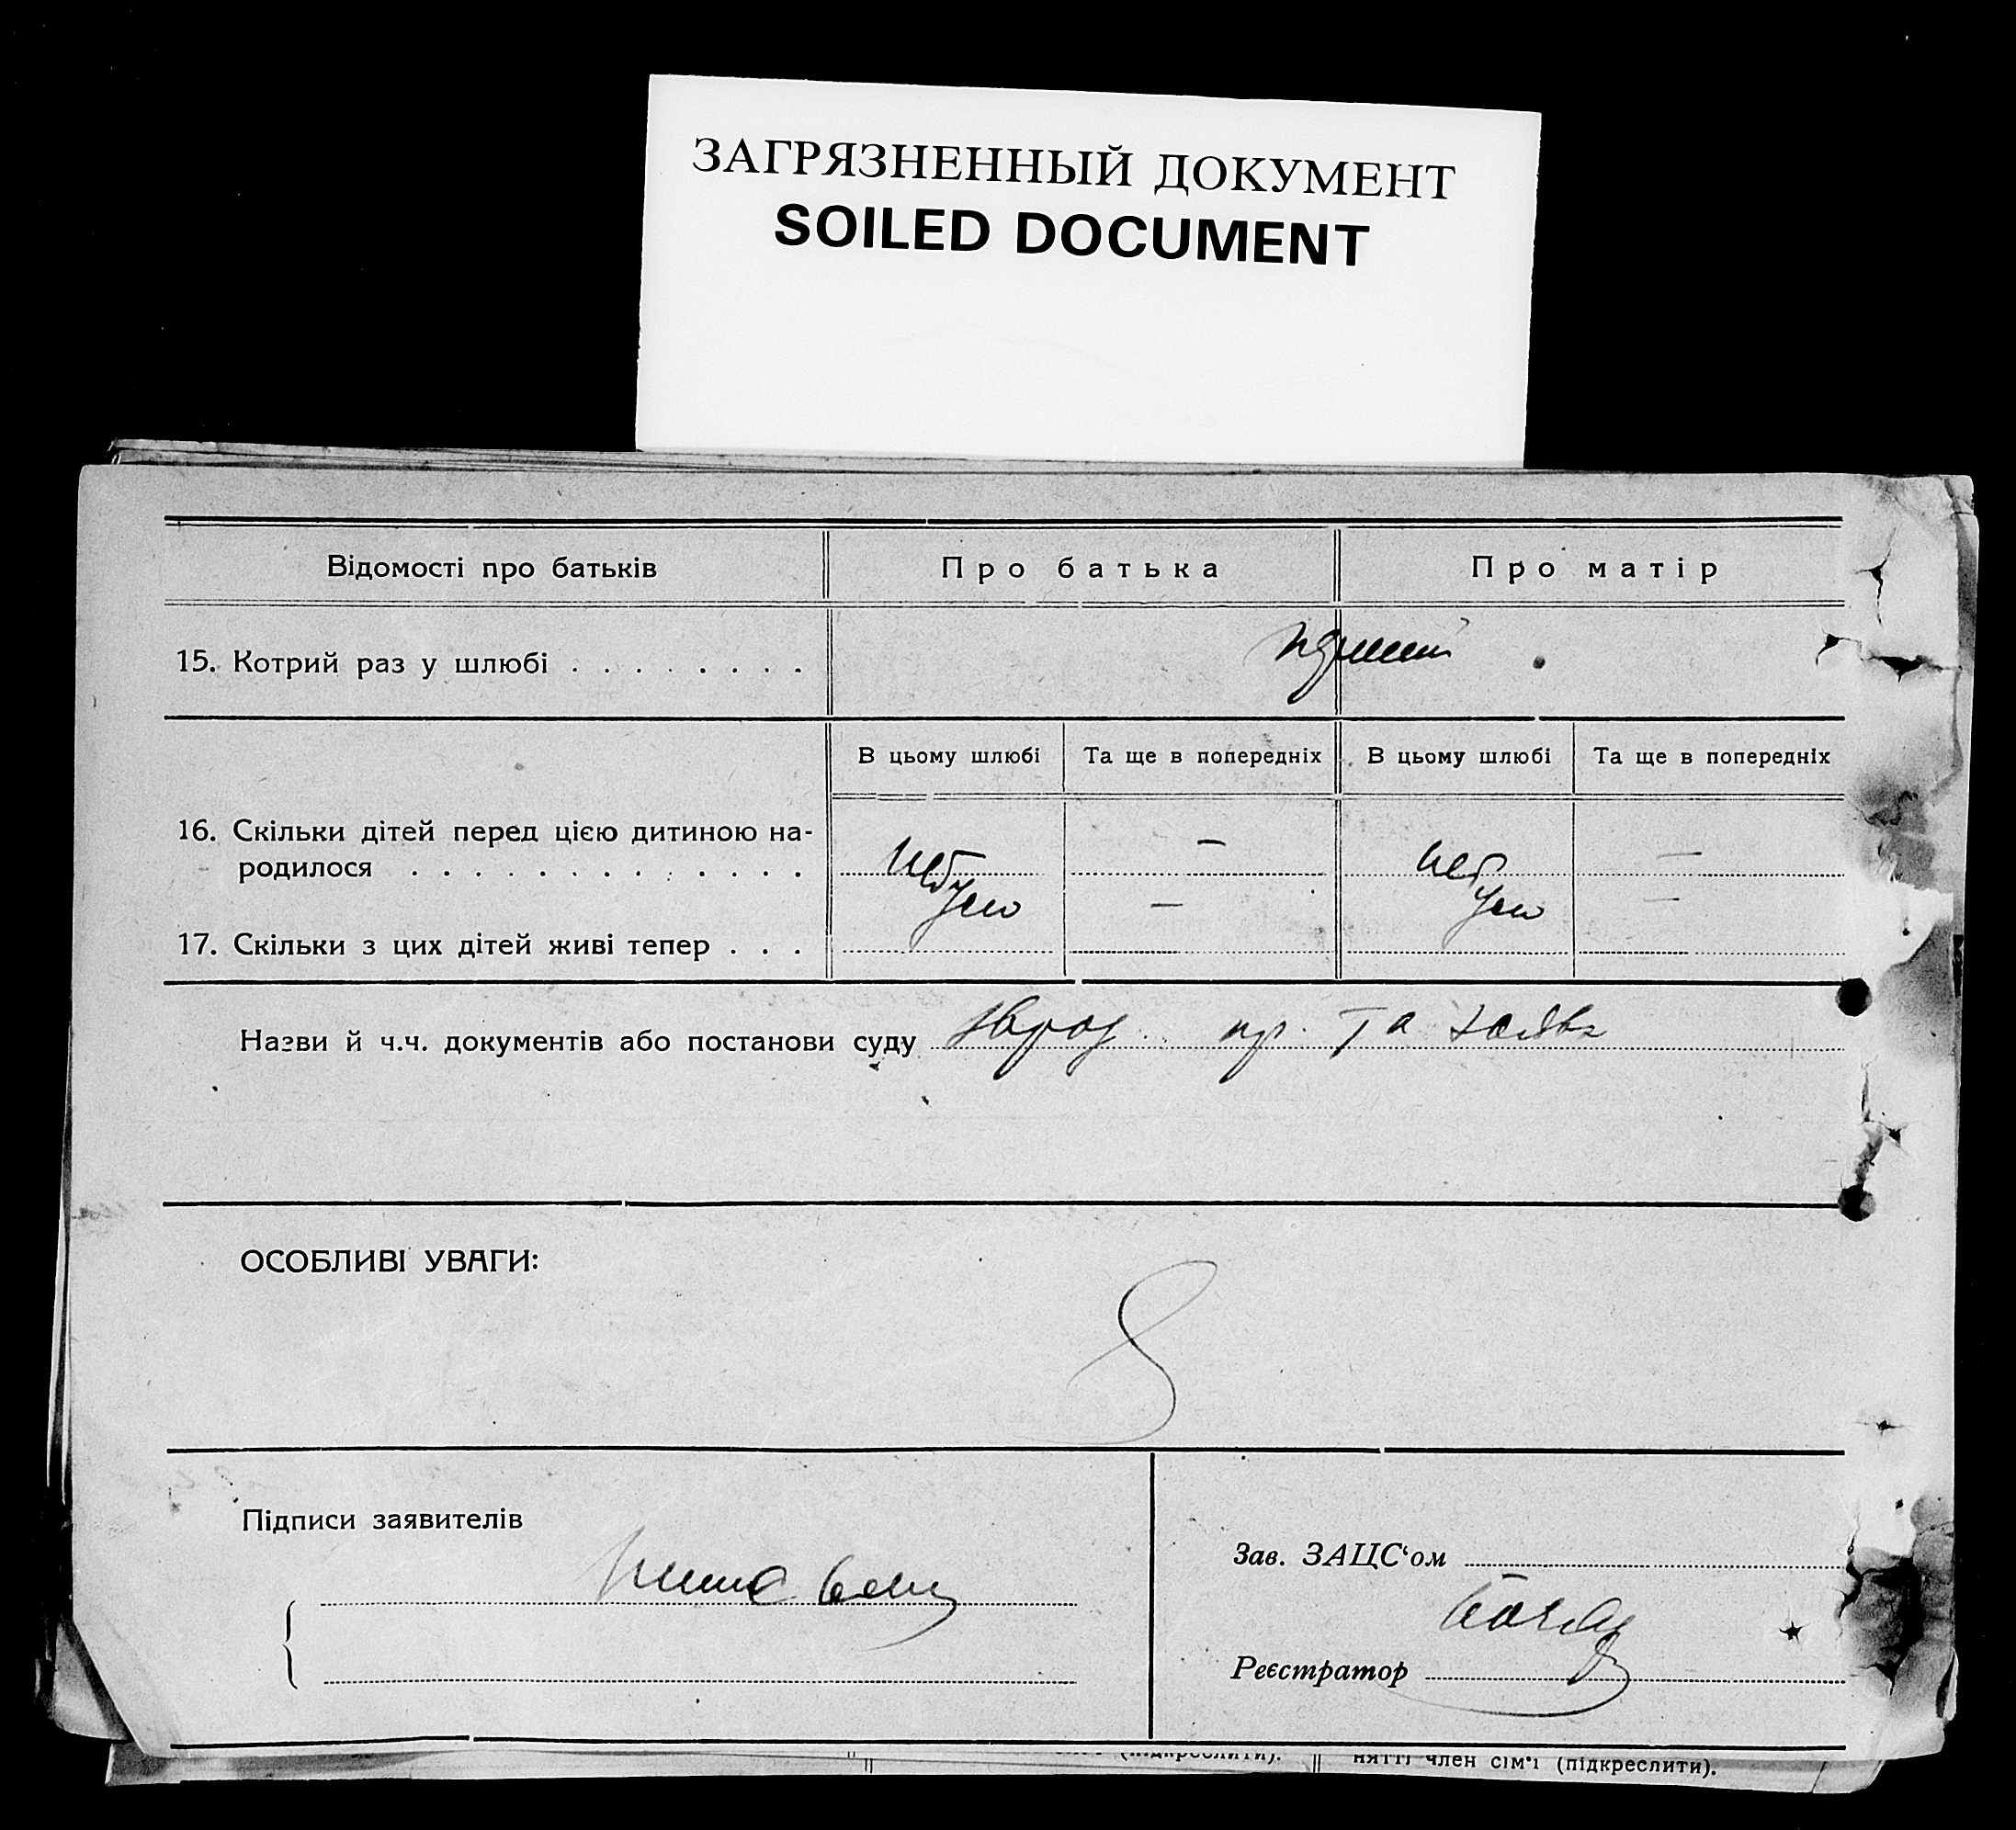 ЗАГРЯЗНЕННЫЙ ДОКУМЕНТ
SOILED DOCUMENT
Відомості про батьків Про батька Про матір
15. Котрий раз у шлюбі . . . . . . . .
В цьому шлюбі Та ще в попередніх В цьому шлюбі Та ще в попередніх
16. Скільки дітей перед цією дитиною на-
родилося . . . . . . . . . . . . . — —
не було — не було —
17. Скільки з цих дітей живі тепер . . .
Назви й ч.ч. документів або постанови суду пр. та заява
ОСОБЛИВІ УВАГИ:
Підписи заявителів
Зав. ЗАЦС‘ом
Реєстратор
(підкреслити). нятті член сім'ї (підкреслити).